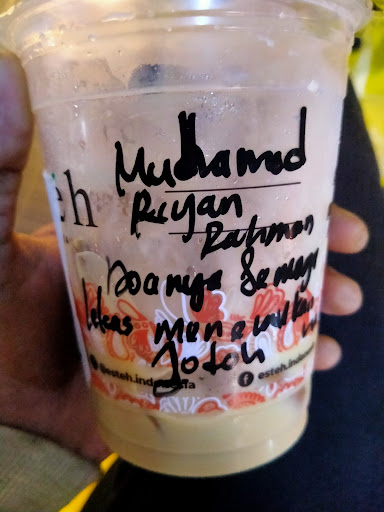 Muhamad
eh
Riyan
Rahman
Doanya Semoga
lekas menemukan
Jodoh
@esteh.indonesia
esteh.indones